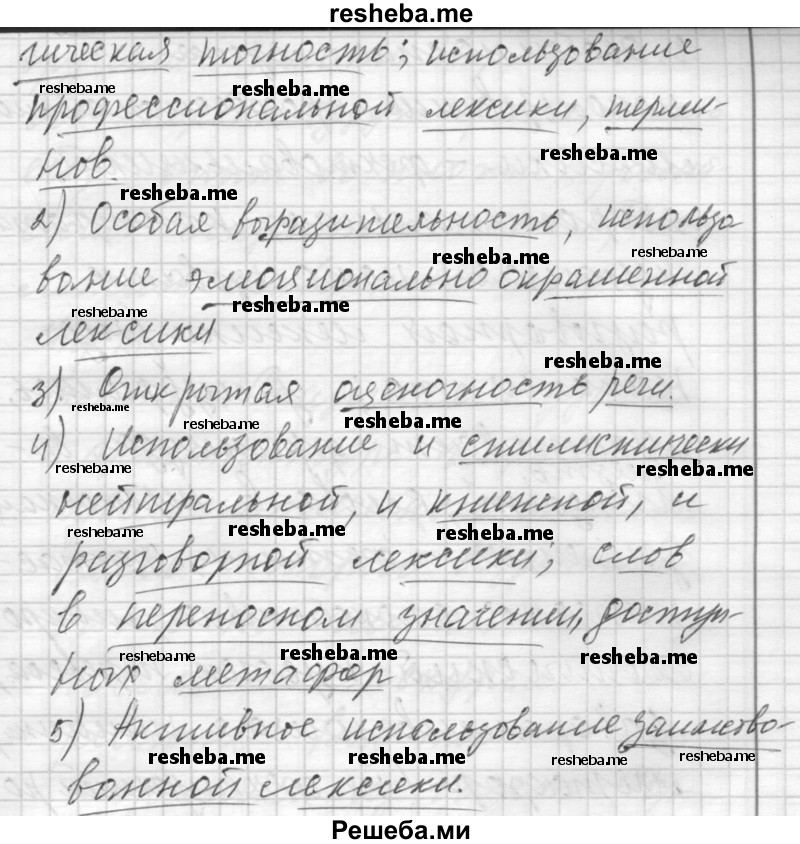 resheba.me
гическая точность; использование
resheba.me resheba.me
профессиональной лексики, терми-
resheba.me
нов.
resheba.me
2) Особая выразительность, использо
resheba.me resheba.me
вание эмоционально окрашенной
resheba.me resheba.me
лексики
resheba.me
3) Открытая оценочность речи.
resheba.me resheba.me resheba.me
4) Использование и стилистически
resheba.me resheba.me
нейтральной, и книжной, и
resheba.me resheba.me resheba.me
разговорной лексики; слов
в переносном значении, доступ-
resheba.me resheba.me resheba.me
ных метафор
5) Активное использование заимство-
resheba.me resheba.me resheba.me resheba.me
ванной лексики.
Решеба.ми